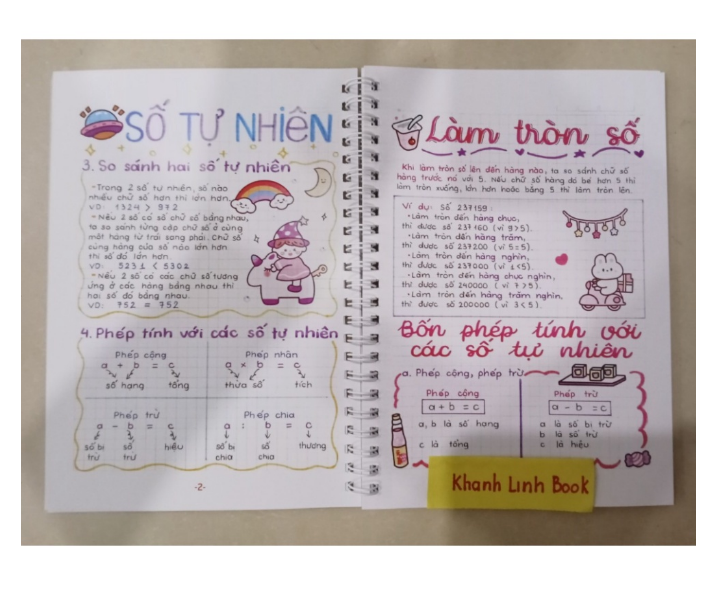 SỐ TỰ NHIÊN
3. So sánh hai số tự nhiên
- Trong 2 số tự nhiên, số nào
nhiều chữ số hơn thì lớn hơn.
VD: 1324 > 972
- Nếu 2 số có số chữ số bằng nhau,
ta so sánh từng cặp chữ số ở cùng
một hàng từ trái sang phải. Chữ số
cùng hàng của số nào lớn hơn
thì số đó lớn hơn.
VD: 5231 < 5301
- Nếu 2 số có các chữ số tương
ứng ở các hàng bằng nhau thì
hai số đó bằng nhau.
VD: 752 = 752
4. Phép tính với các số tự nhiên
Phép cộng
a + b = c
số hạng tổng
Phép nhân
a × b = c
thừa số tích
Phép trừ
a - b = c
số bị trừ số trừ hiệu
Phép chia
a : b = c
số bị chia số chia thương
-2-
Làm tròn số
Khi làm tròn số lên đến hàng nào, ta so sánh chữ số
hàng trước nó với 5. Nếu chữ số hàng đó bé hơn 5 thì
làm tròn xuống, lớn hơn hoặc bằng 5 thì làm tròn lên.
Ví dụ: Số 237159:
- Làm tròn đến hàng chục,
thì được số 237160 (vì 9>5).
- Làm tròn đến hàng trăm,
thì được số 237200 (vì 5=5).
- Làm tròn đến hàng nghìn,
thì được số 237000 (vì 1<5).
- Làm tròn đến hàng chục nghìn,
thì được số 240000 (vì 7>5).
- Làm tròn đến hàng trăm nghìn,
thì được số 200000 (vì 3<5).
Bốn phép tính với
các số tự nhiên
a. Phép cộng, phép trừ
Phép cộng
a + b = c
a, b là số hạng
c là tổng
Phép trừ
a - b = c
a là số bị trừ
b là số trừ
c là hiệu
Khanh Linh Book